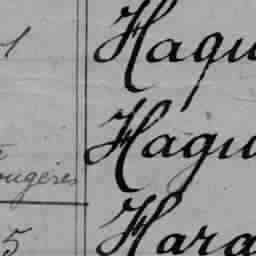 Hagu
Hagu
ougères
Hara
5